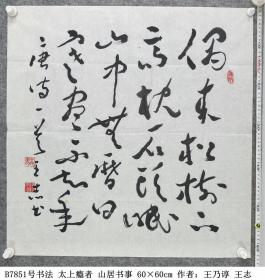 偶来松树下
高枕石头眠
山中無曆日
寒尽不知年
唐诗一首
B7851号书法 太上瘾者 山居书事 60×60cm 作者：王乃谆 王志